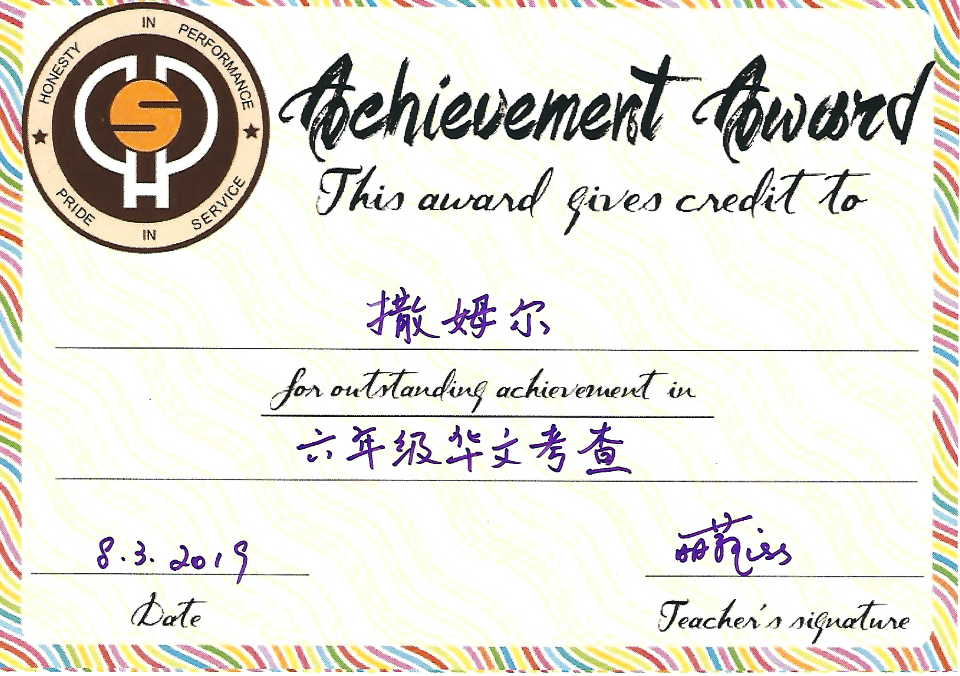 HONESTY IN PERFORMANCE
PRIDE IN SERVICE
S
H
Achievement Award
This award gives credit to
撒姆尔
for outstanding achievement in
六年级华文考查
8.3.2019
Date
Teacher's signature